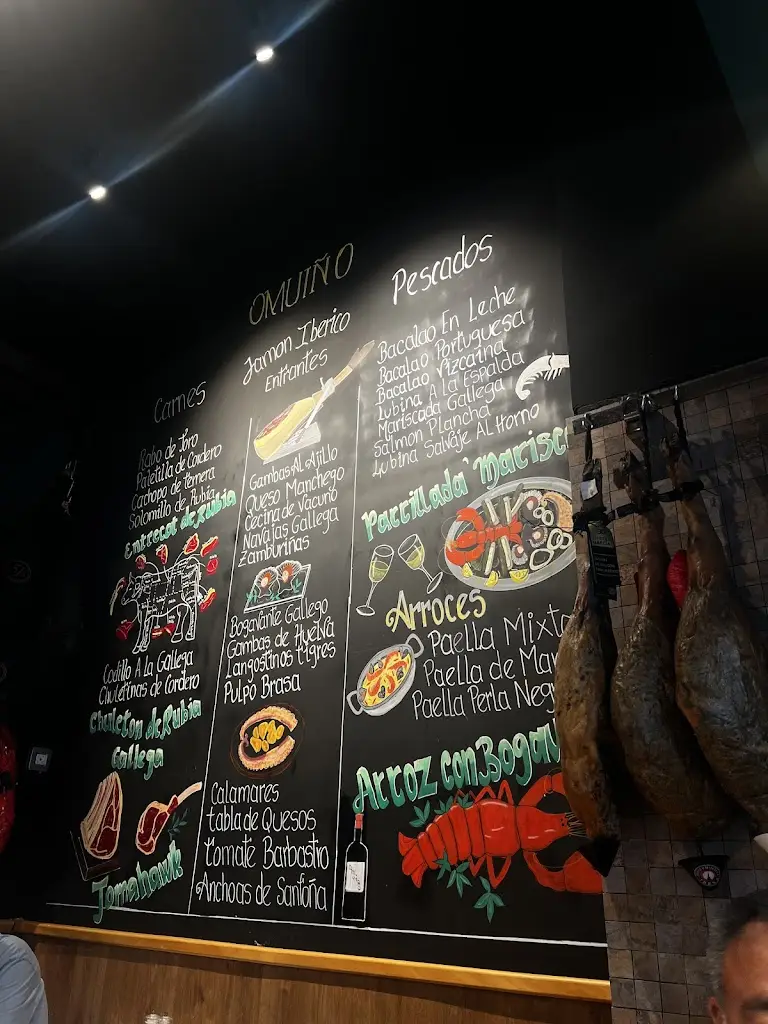 OMUIÑO
Carnes
Rabo de Toro
Paletilla de Cordero
Cachopo de Ternera
Solomillo de Rubia
Entrecot de Rubia
Codillo A la Gallega
Chuletinas de Cordero
Chuleton de Rubia
Gallega
Tomahawk
Jamon Iberico
Entrantes
Gambas Al Ajillo
Queso Manchego
Cecina de Vacuno
Navajas Gallega
Zamburiñas
Bogavante Gallego
Gambas de Huelva
Langostinos tigres
Pulpo Brasa
Calamares
tabla de Quesos
tomate Barbastro
Anchoas de Santoña
Pescados
Bacalao En Leche
Bacalao Portuguesa
Bacalao Vizcaina
Lubina A la Espalda
Mariscada Gallega
Salmon Plancha
Lubina Salvaje Al Horno
Parrillada Marisc
Arroces
Paella Mixta
Paella de Mar
Paella Perla Neg
Arroz con Bogav